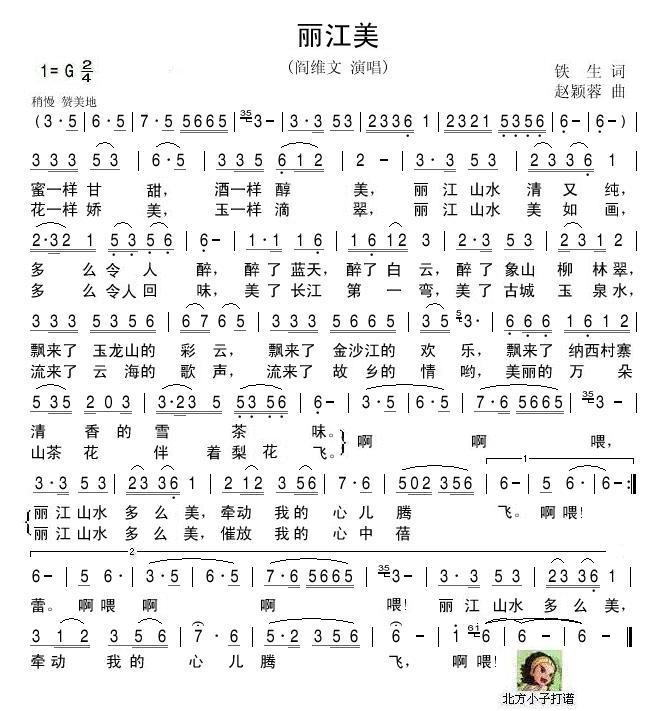 丽江美
1=G 2/4
(阎维文 演唱)
铁 生 词
赵颖蓉 曲
稍慢 赞美地
(3·5 | 6·5 | 7·5 5665 | 35 3- | 3·3 53 | 2336 1 | 2321 5356 | 6- | 6- ) |
333 53 | 6·5 | 335 612 | 2 - | 3·3 53 | 2336 |
蜜一样 甘 甜, 酒一样 醇 美, 丽 江 山水 清 又 纯,
花一样 娇 美, 玉一样 滴 翠, 丽 江 山水 美 如 画,
2·32 1 | 53 56 | 6- | 1·1 16 | 1612 3 | 2·3 53 | 2312 |
多 么 令 人 醉, 醉 了 蓝天, 醉了 白 云, 醉 了 象山 柳 林 翠,
多 么 令人 回 味, 美 了 长江 第 一 弯, 美 了 古城 玉 泉 水,
333 5356 | 6765 | 335 665 | 35 5 3· | 666 1612 |
飘来了 玉龙山的 彩 云, 飘来了 金沙江的 欢 乐, 飘来了 纳西村寨
流来了 云 海的 歌 声, 流来了 故 乡的 情 哟, 美丽的 万 朵
535 203 | 3·23 5 | 53 56 | 6- | 3·5 | 6·5 | 7·6 5665 | 35 3- |
清 香的 雪 茶 味。 啊 啊 喂,
山茶 花 伴 着 梨花 飞。
3·3 53 | 2336 1 | 212 36 | 7·6 | 502 356 | 6- | 5·6 | 6- :|
1
丽 江 山水 多 么 美, 牵动 我的 心 儿 腾 飞。 啊 喂!
丽 江 山水 多 么 美, 催放 我的 心 中 蓓
2
6- | 5 6· | 3·5 | 6·5 | 7·6 5665 | 35 3- | 3·3 53 | 2336 1 |
蕾。 啊喂 啊 啊 喂! 丽 江 山水 多 么 美,
312 356 | 7·6 | 5·2 356 | 6 - | 1· 61 6 | 6 - ||
牵动 我 的 心 儿 腾 飞, 啊 喂!
北方小子打谱